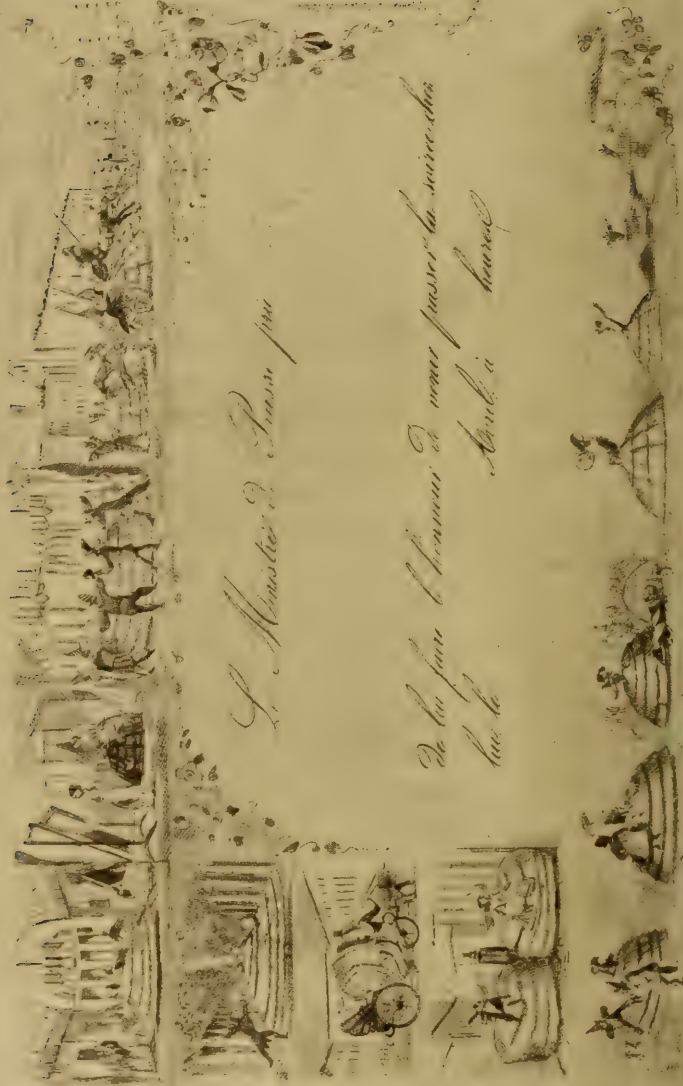 Le Ministre de Prusse prie
de lui faire l'honneur de venir passer la soirée chez
lui, le Avril, à heures